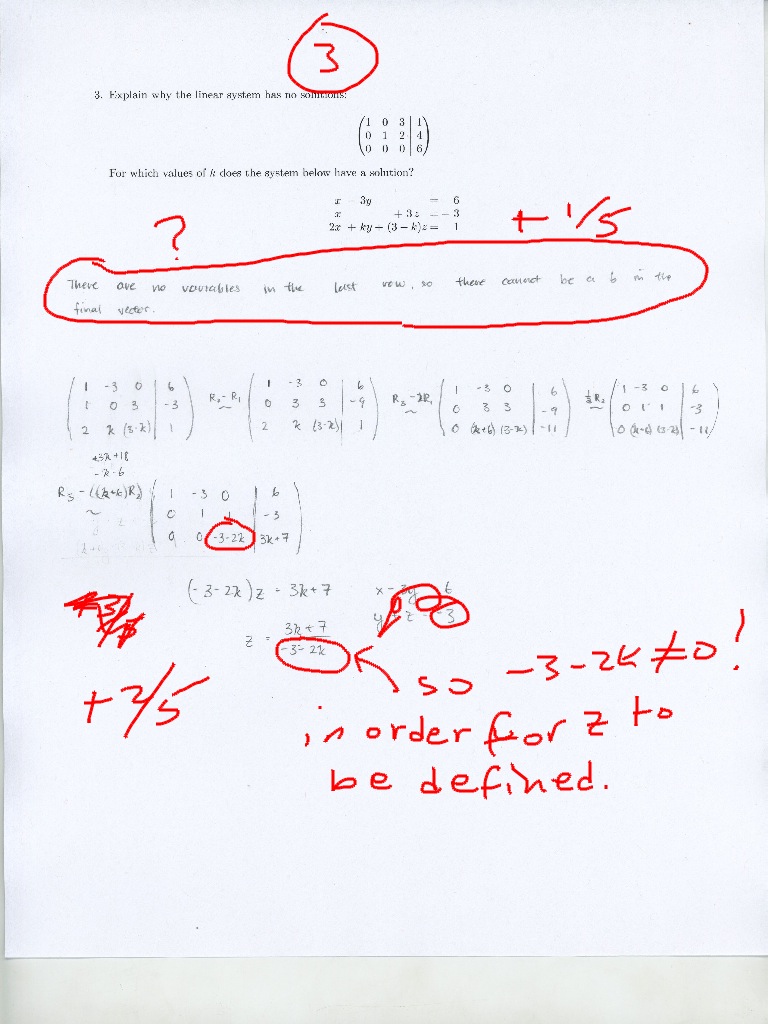 3
3. Explain why the linear system has no solutions:
1 0 3 | 1
0 1 2 | 4
0 0 0 | 6
For which values of k does the system below have a solution?
x - 3y = 6
x + 3z = -3
2x + ky + (3 - k)z = 1
? + 1/5
There are no variables in the last row, so there cannot be a 6 in the
final vector.
1 -3 0 | 6 R2-R1 1 -3 0 | 6 R3-2R1 1 -3 0 | 6 1/3 R2 1 -3 0 | 6
1 0 3 | -3 ~ 0 3 3 | -9 ~ 0 3 3 | -9 ~ 0 1 1 | -3
2 k (3-k) | 1 2 k (3-k) | 1 0 (k+6) (3-k) | -11 0 (k+6) (3-k) | -11
+3k+18
-k-6
R3-((k+6)R2) 1 -3 0 | 6
~ 0 1 1 | -3
0 0 -3-2k | 3k+7
(-3-2k)z = 3k+7 x-3y 6
y+z -3
z = 3k+7
-3-2k
so -3-2k≠0!
+2/5
in order for z to
be defined.